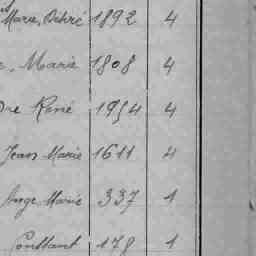 Marie, Désiré 1892 4
Marie 1808 4
René 1954 4
Jean Marie 1611 4
Ange Marie 337 1
Constant 178 1